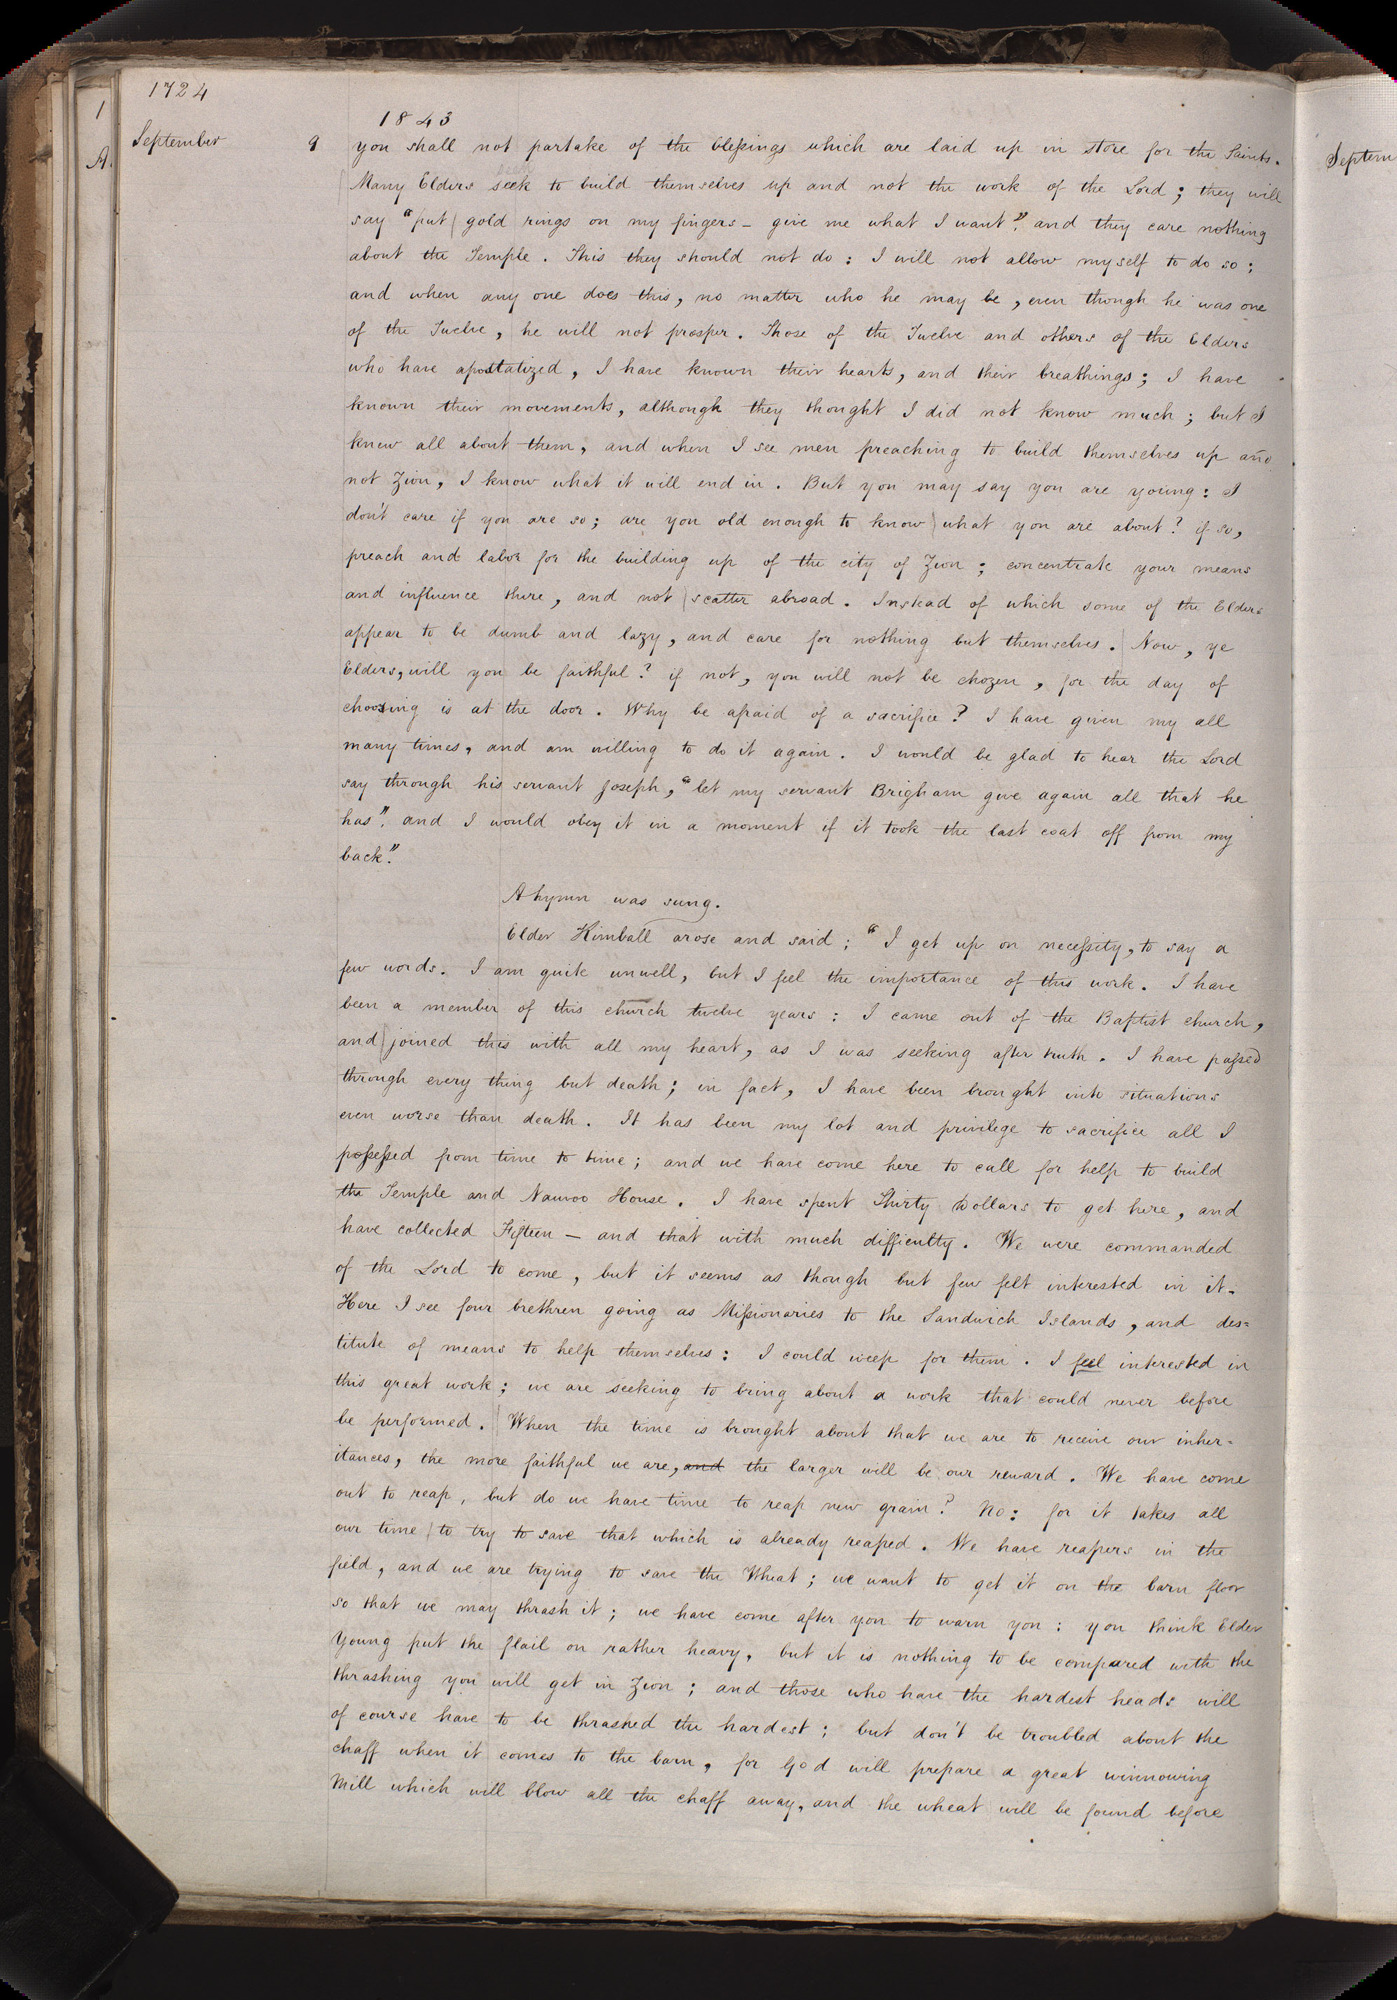 1724
1843
September 9 you shall not partake of the blessings which are laid up in store for the Saints.
Many Elders seek to build themselves up and not the work of the Lord; they will
say "put gold rings on my fingers – give me what I want", and they care nothing
about the Temple. This they should not do: I will not allow myself to do so;
and when any one does this, no matter who he may be, even though he was one
of the Twelve, he will not prosper. Those of the Twelve and others of the Elders
who have apostatized, I have known their hearts, and their breathings; I have
known their movements, although they thought I did not know much; but I
knew all about them, and when I see men preaching to build themselves up and
not Zion, I know what it will end in. But you may say you are young: I
don't care if you are so; are you old enough to know what you are about? if so,
preach and labor for the building up of the city of Zion; concentrate your means
and influence there, and not scatter abroad. Instead of which some of the Elders
appear to be dumb and lazy, and care for nothing but themselves. Now, ye
Elders, will you be faithful? if not, you will not be chozen, for the day of
choosing is at the door. Why be afraid of a sacrifice? I have given my all
many times, and am willing to do it again. I would be glad to hear the Lord
say through his servant Joseph, "let my servant Brigham give again all that he
has", and I would obey it in a moment if it took the last coat off from my
back."
A hymn was sung.
Elder Kimball arose and said; "I get up on necessity, to say a
few words. I am quite unwell, but I feel the importance of this work. I have
been a member of this church twelve years: I came out of the Baptist church,
and joined this with all my heart, as I was seeking after truth. I have passed
through every thing but death; in fact, I have been brought into situations
even worse than death. It has been my lot and privilege to sacrifice all I
possessed from time to time; and we have come here to call for help to build
the Temple and Nauvoo House. I have spent Thirty Dollars to get here, and
have collected Fifteen – and that with much difficulty. We were commanded
of the Lord to come, but it seems as though but few felt interested in it.
Here I see four brethren going as Missionaries to the Sandwich Islands, and des=
titute of means to help themselves: I could weep for them. I feel interested in
this great work; we are seeking to bring about a work that could never before
be performed. When the time is brought about that we are to receive our inher=
itances, the more faithful we are, and the larger will be our reward. We have come
out to reap, but do we have time to reap new grain? No: for it takes all
our time to try to save that which is already reaped. We have reapers in the
field, and we are trying to save the Wheat; we want to get it on the barn floor
so that we may thrash it; we have come after you to warn you: you think Elder
Young put the flail on rather heavy, but it is nothing to be compared with the
thrashing you will get in Zion; and those who have the hardest heads will
of course have to be thrashed the hardest; but don't be troubled about the
chaff when it comes to the barn, for God will prepare a great winnowing
Mill which will blow all the chaff away, and the wheat will be found before
1
A
Septem